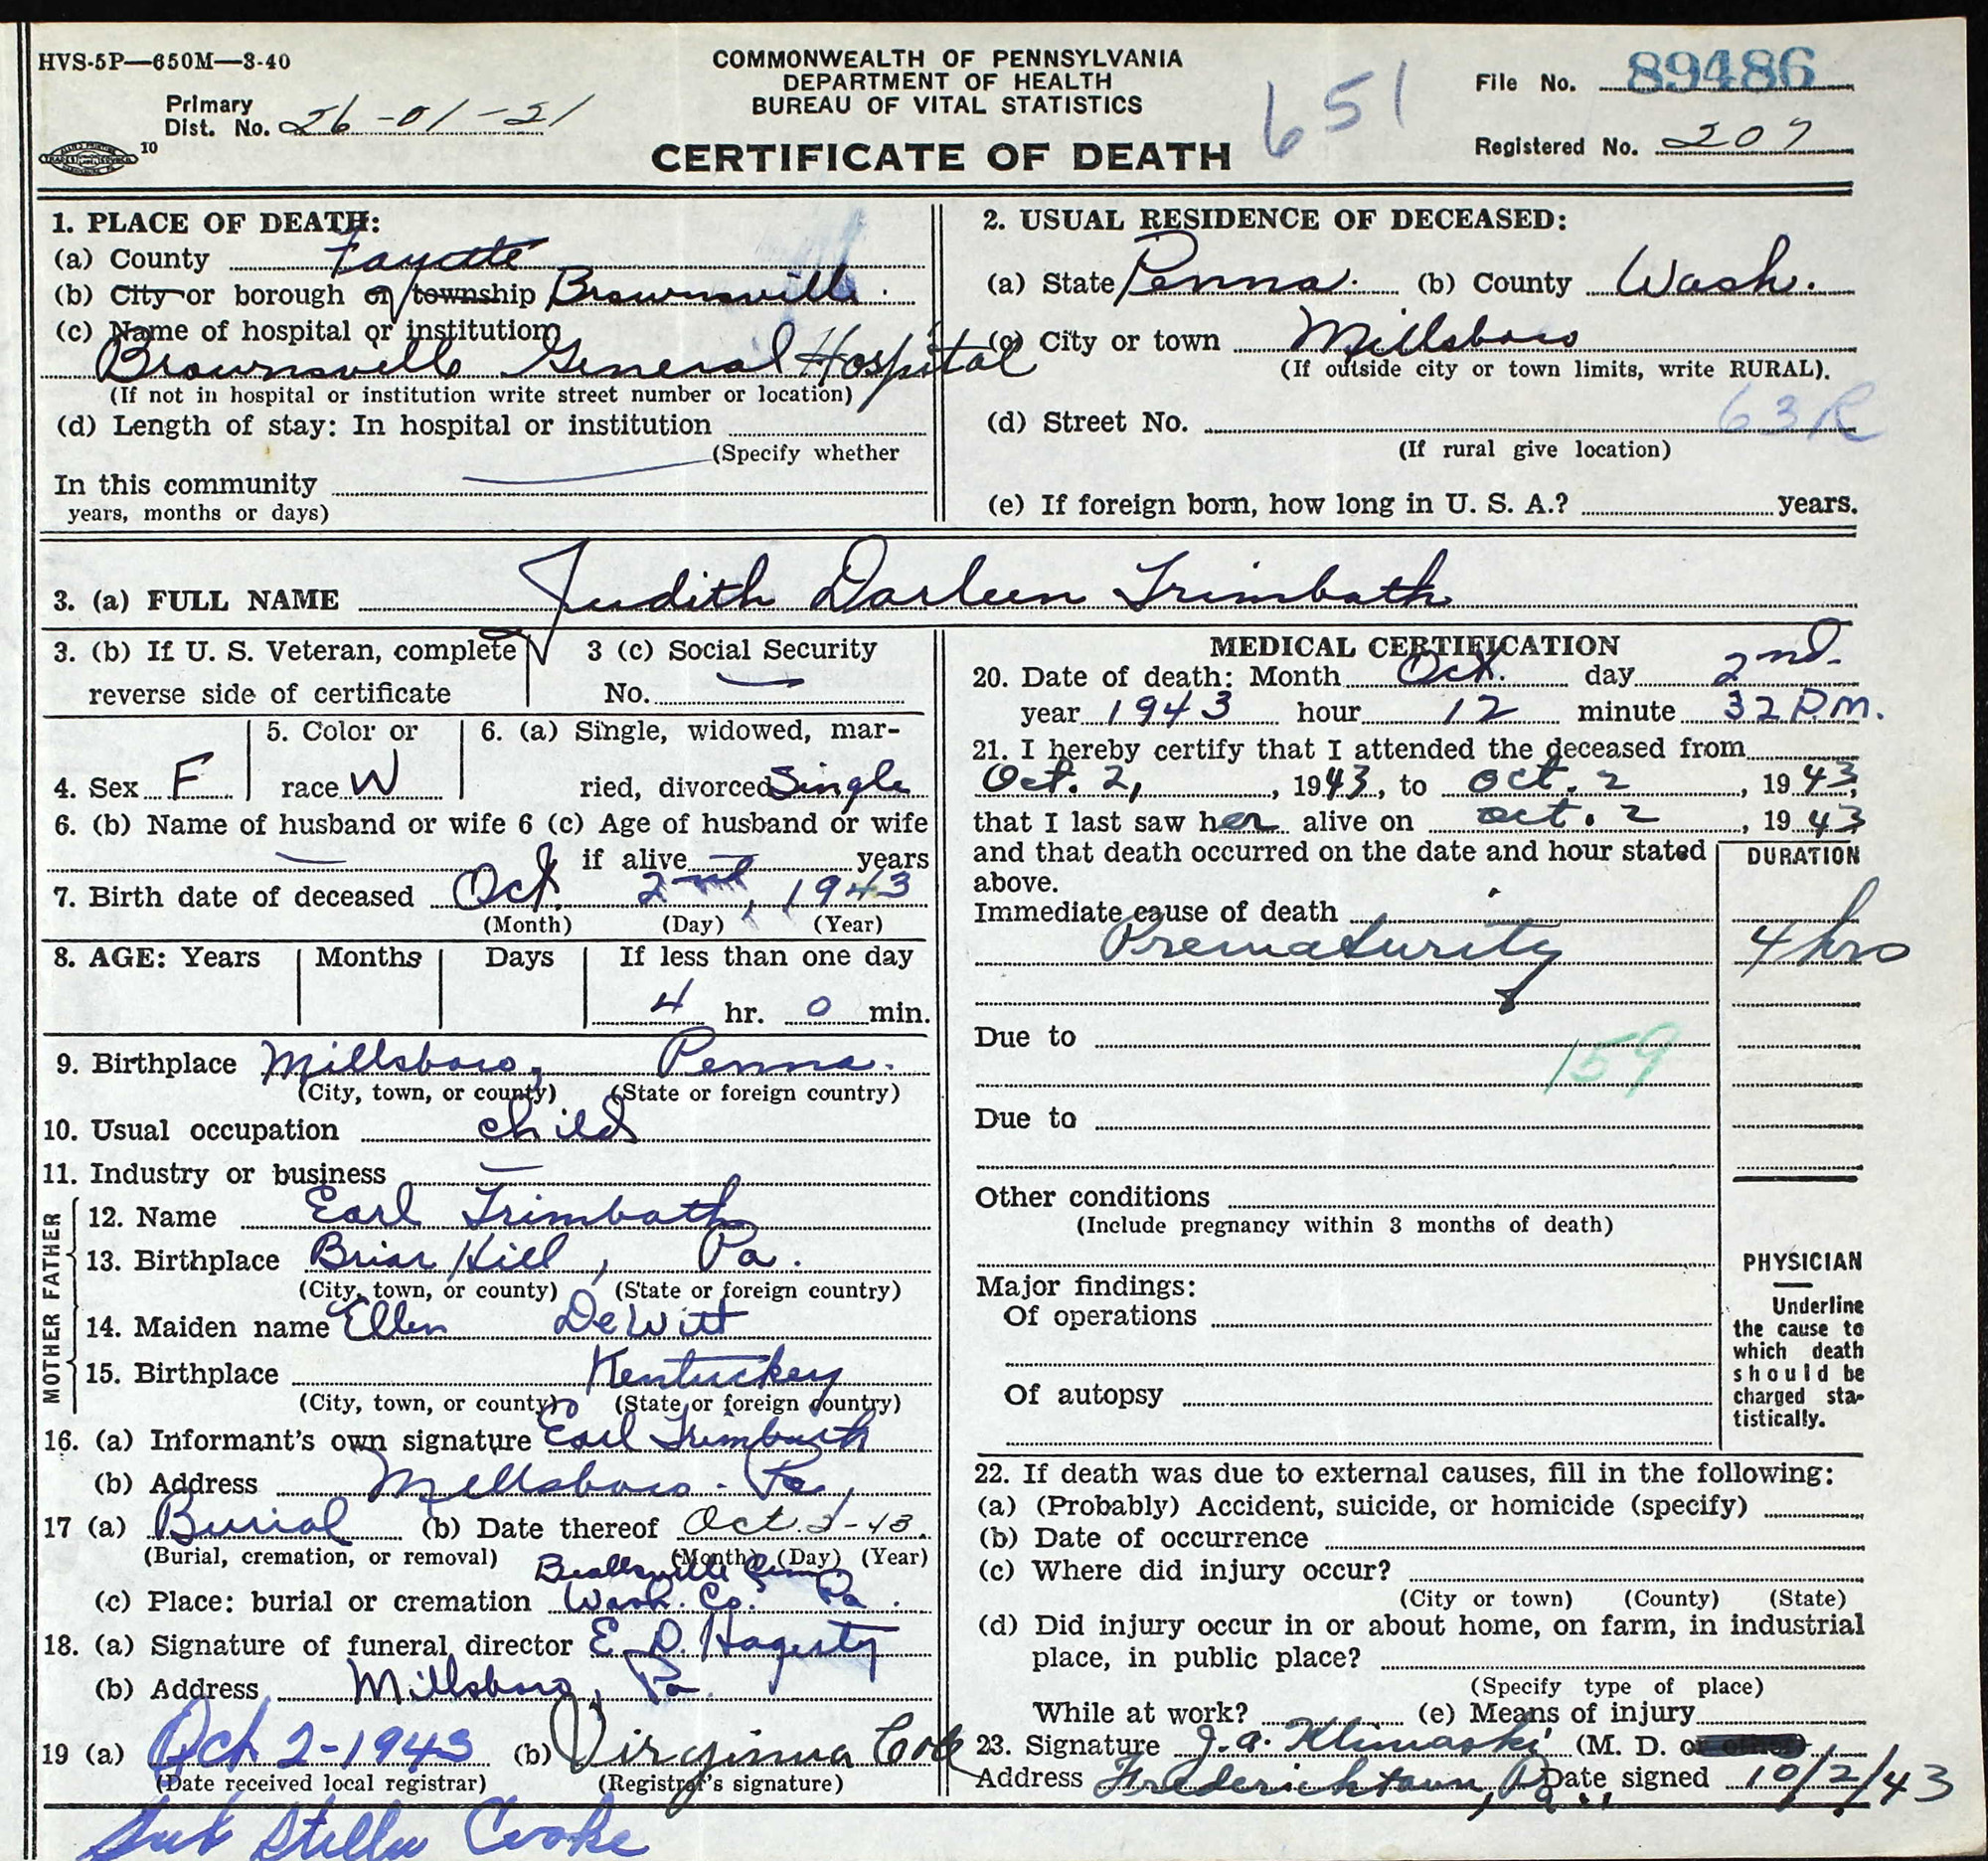 HVS-5P—650M—3-40
COMMONWEALTH OF PENNSYLVANIA
DEPARTMENT OF HEALTH
BUREAU OF VITAL STATISTICS
CERTIFICATE OF DEATH
651
File No. 89486
Registered No. 207
Primary
Dist. No. 26-01-21
10
1. PLACE OF DEATH:
(a) County Fayette
(b) City or borough or township Brownsville.
(c) Name of hospital or institution
Brownsville General Hospital
(If not in hospital or institution write street number or location)
(d) Length of stay: In hospital or institution
(Specify whether
In this community
years, months or days)
2. USUAL RESIDENCE OF DECEASED:
(a) State Penna. (b) County Wash.
(c) City or town Millsboro
(If outside city or town limits, write RURAL).
63R
(d) Street No.
(If rural give location)
(e) If foreign born, how long in U. S. A.? years.
3. (a) FULL NAME Judith Darleen Trimbath
3. (b) If U. S. Veteran, complete
reverse side of certificate
3 (c) Social Security
No. —
4. Sex F
5. Color or
race W
6. (a) Single, widowed, mar-
ried, divorced Single
6. (b) Name of husband or wife 6 (c) Age of husband or wife
— if alive — years
7. Birth date of deceased Oct. 2nd, 1943
(Month) (Day) (Year)
8. AGE: Years Months Days If less than one day
4 hr. 0 min.
9. Birthplace Millsboro, Penna.
(City, town, or county) (State or foreign country)
10. Usual occupation child
11. Industry or business —
FATHER
12. Name Earl Trimbath
13. Birthplace Briar Hill, Pa.
(City, town, or county) (State or foreign country)
MOTHER
14. Maiden name Ellen DeWitt
15. Birthplace Kentuckey
(City, town, or county) (State or foreign country)
16. (a) Informant's own signature Earl Trimbath
(b) Address Millsboro. Pa,
17 (a) Burial (b) Date thereof Oct. 2-43.
(Burial, cremation, or removal) (Month) (Day) (Year)
Beallsville Cem
(c) Place: burial or cremation Wash. Co. Pa.
18. (a) Signature of funeral director E. R. Hagerty
(b) Address Millsboro, Pa.
19 (a) Oct 2-1943 (b) Virginia Cook
(Date received local registrar) (Registrar's signature)
Sub Stella Cooke
MEDICAL CERTIFICATION
20. Date of death: Month Oct. day 2nd.
year 1943 hour 12 minute 32 P.M.
21. I hereby certify that I attended the deceased from
Oct. 2, 1943, to Oct. 2, 1943,
that I last saw her alive on Oct. 2, 1943
and that death occurred on the date and hour stated
above.
DURATION
Immediate cause of death
Prematurity 4 hrs
Due to
159
Due to
Other conditions
(Include pregnancy within 3 months of death)
Major findings:
Of operations
Of autopsy
PHYSICIAN
Underline
the cause to
which death
should be
charged sta-
tistically.
22. If death was due to external causes, fill in the following:
(a) (Probably) Accident, suicide, or homicide (specify)
(b) Date of occurrence
(c) Where did injury occur?
(City or town) (County) (State)
(d) Did injury occur in or about home, on farm, in industrial
place, in public place?
(Specify type of place)
While at work? (e) Means of injury
23. Signature J. A. Klimaski (M. D.
Address Fredericktown, Pa., Date signed 10/2/43